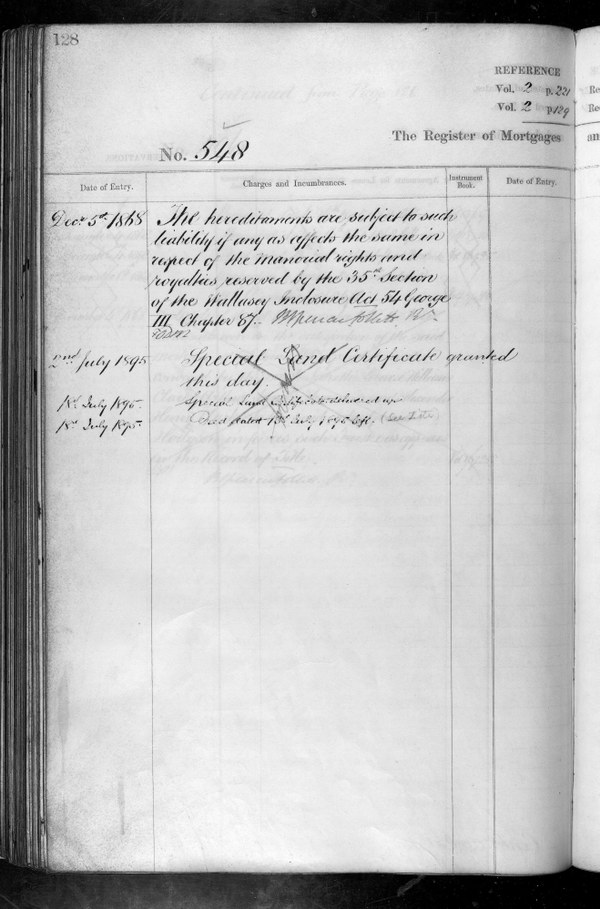 128
REFERENCE
Vol. 2 p. 221
Vol. 2 p. 129
The Register of Mortgages
an
No. 548
Date of Entry.
Charges and Incumbrances.
Instrument Book.
Date of Entry.
Decr. 5th. 1868
The hereditaments are subject to such
liability if any as affects the same in
respect of the manorial rights and
royalties reserved by the 35th Section
of the Wallasey Inclosure Act 54 George
III. Chapter 57.
2nd July 1895
Special Land Certificate granted
this day.
18th July 1895.
Special Land Certificate delivered up
18th July 1895.
Deed dated 18th July 1895 left. (See Title)